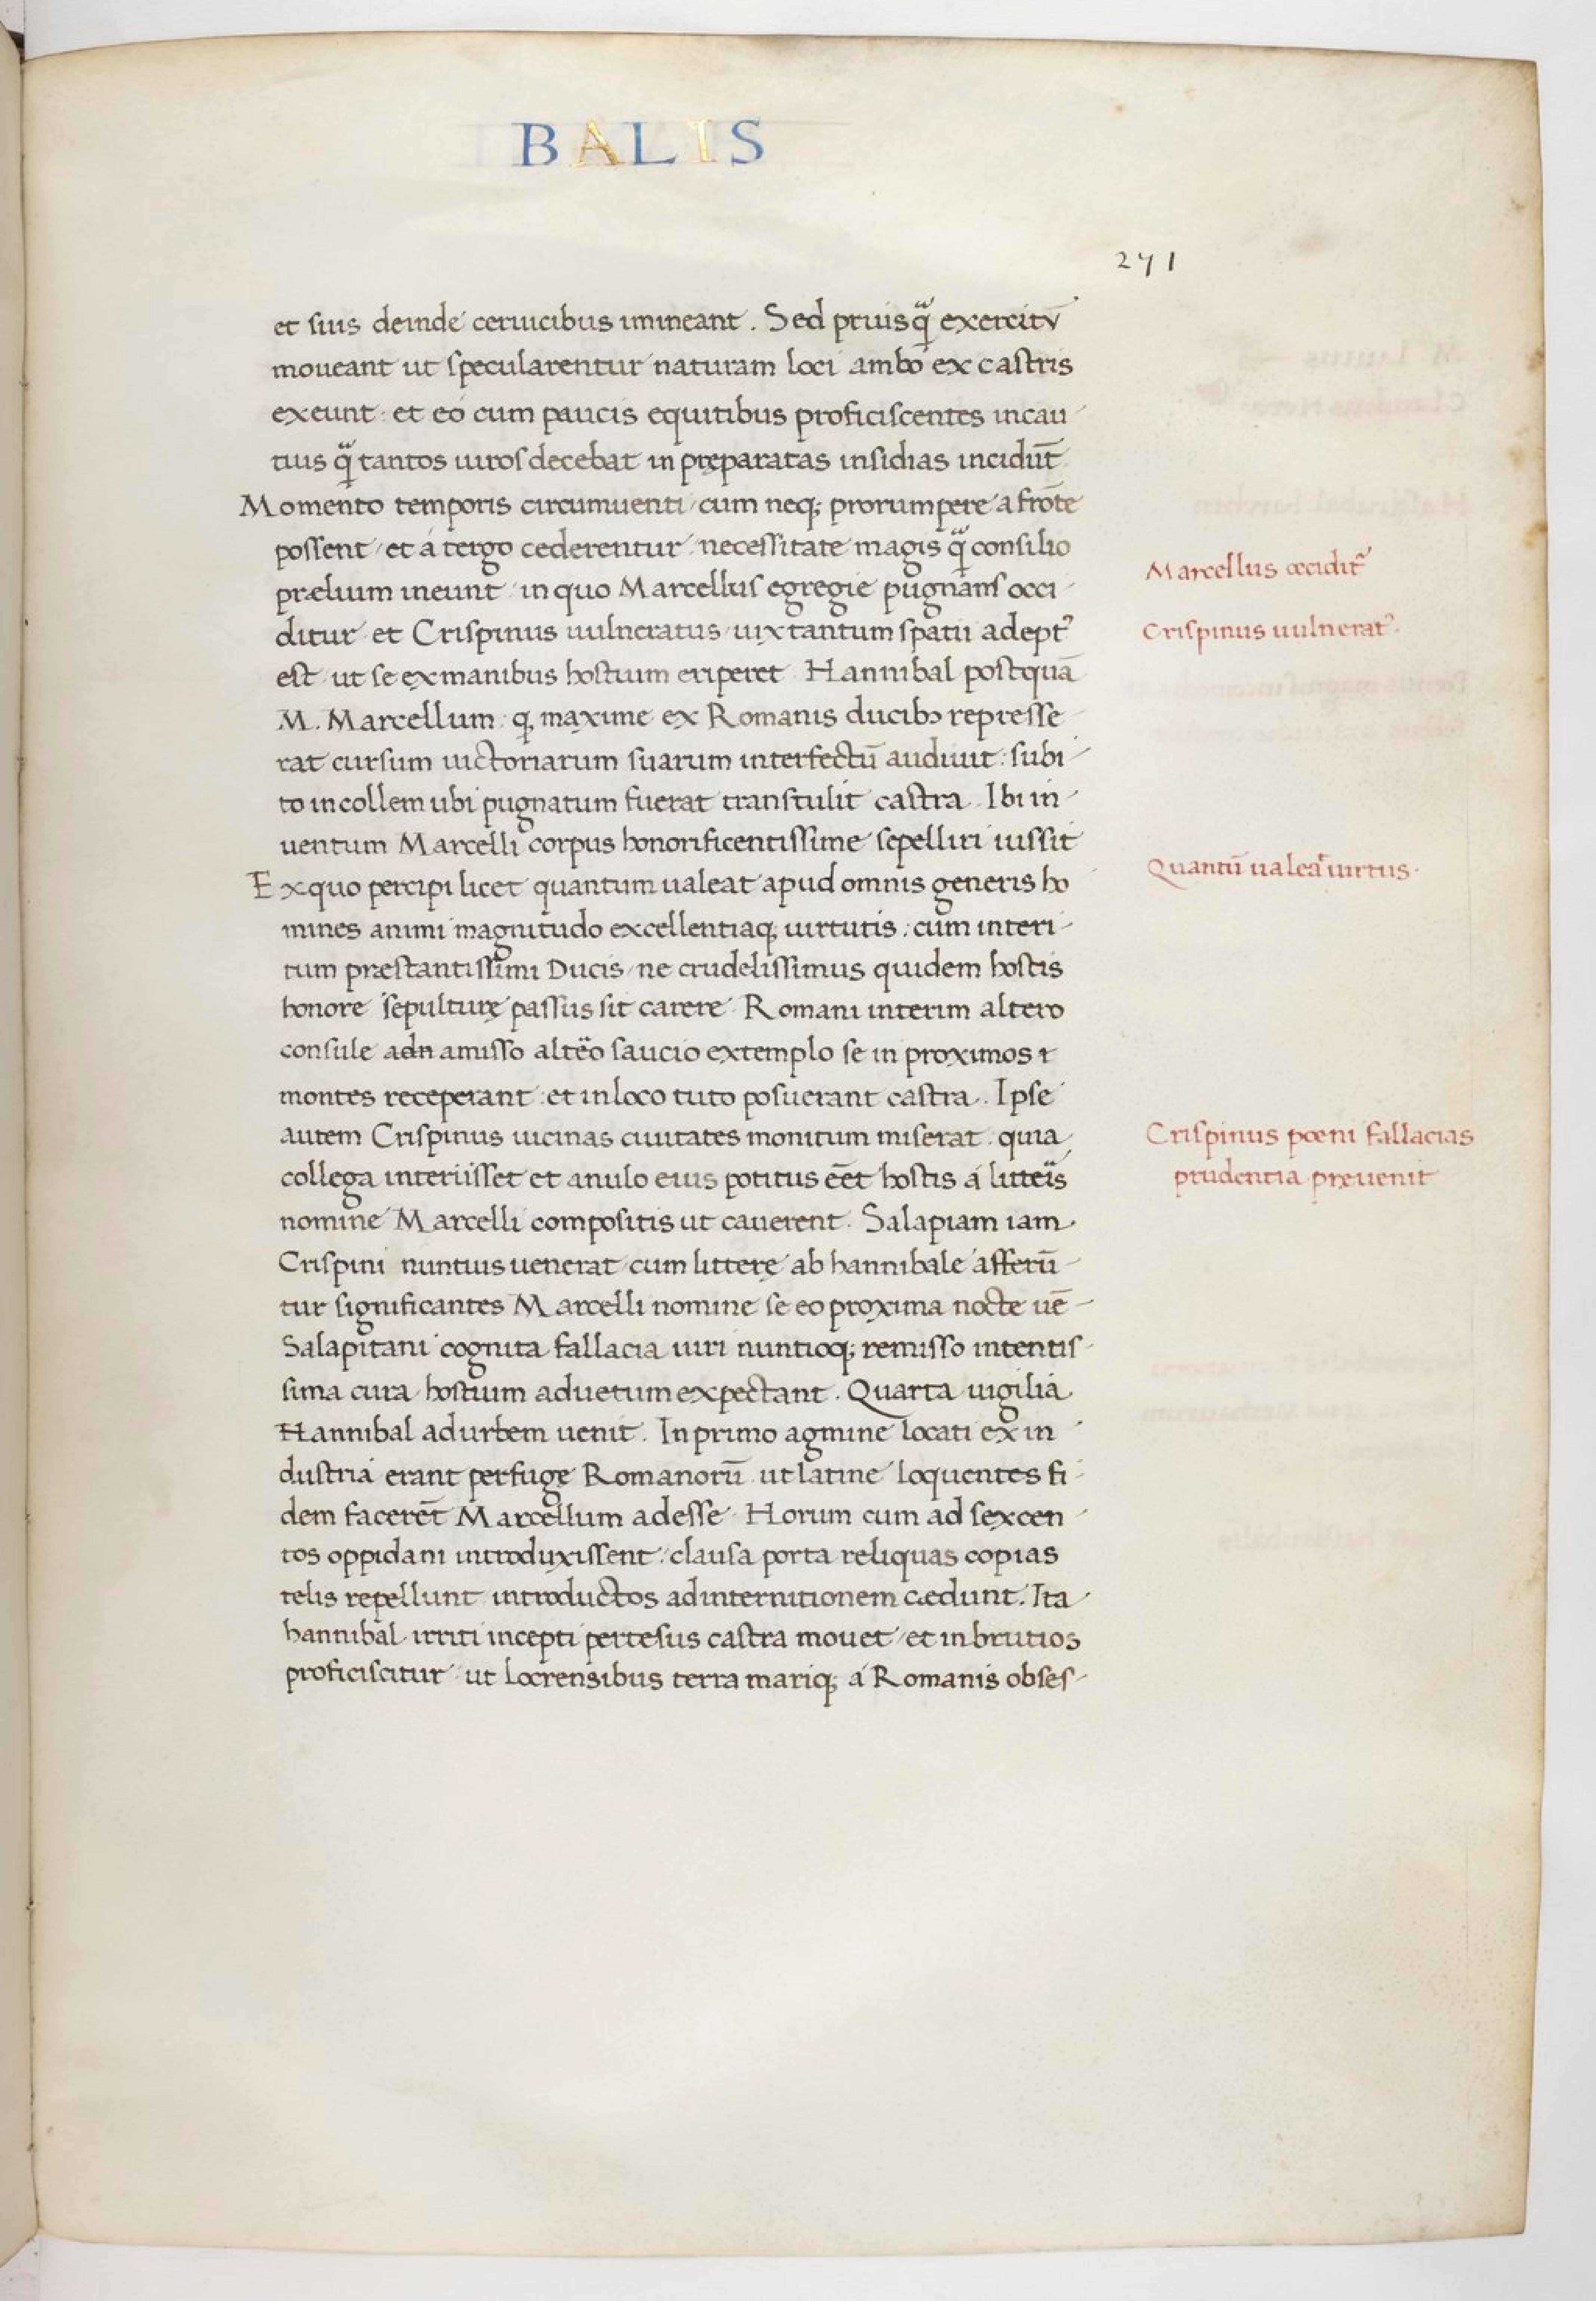 BALIS
271
et suis deinde ceruicibus imineant. Sed priusq̃ exercitū
moueant ut specularentur naturam loci ambo ex castris
exeunt et eo cum paucis equitibus proficiscentes incau
tius q̃ tantos uiros decebat in pręparatas insidias incidūt
Momento temporis circumuenti cum neq; prorumpere a frōte
possent et á tergo cederentur necessitate magis q̃ consilio
prælium ineunt in quo Marcellus egregie pugnans occi
ditur et Crispinus uulneratus uix tantum spatii adeptꝰ
est ut se ex manibus hostium eriperet Hannibal postquā
M. Marcellum q; maxime ex Romanis ducibꝫ represse
rat cursum uictoriarum suarum interfectū audiuit: subi
to in collem ubi pugnatum fuerat transtulit castra. Ibi in
uentum Marcelli corpus honorificentissime sepelliri iussit
Ex quo percipi licet quantum ualeat apud omnis generis ho
mines animi magnitudo excellentiaq; uirtutis: cum interi
tum præstantissimi Ducis ne crudelissimus quidem hostis
honore sepulturę passus sit carere Romani interim altero
consule adn amisso altero saucio extemplo se in proximos
montes receperant: et in loco tuto posuerant castra. Ipse
autem Crispinus uicinas ciuitates monitum miserat quia
collega interiisset et anulo eius potitus eēt hostis á litteris
nomine Marcelli compositis ut cauerent. Salapiam iam
Crispini nuntius uenerat cum litterę ab hannibale afferū
tur significantes Marcelli nomine se eo proxima nocte uē
Salapitani cognita fallacia uiri nuntioq; remisso intentis
sima cura hostium aduetum expectant. Quarta uigilia
Hannibal ad urbem uenit. In primo agmine locati ex in
dustria erant perfugę Romanorū ut latine loquentes fi
dem facerēt Marcellum adesse Horum cum ad sexcen
tos oppidani introduxissent: clausa porta reliquas copias
telis repellunt introductos ad internitionem cædunt. Ita
hannibal irriti incepti pertesus castra mouet et in brutios
proficiscitur ut Locrensibus terra mariq; á Romanis obses
Marcellus occiditr̃
Crispinus uulneratꝰ.
Quantū ualeat uirtus.
Crispinus poeni fallacias
prudentia pręuenit